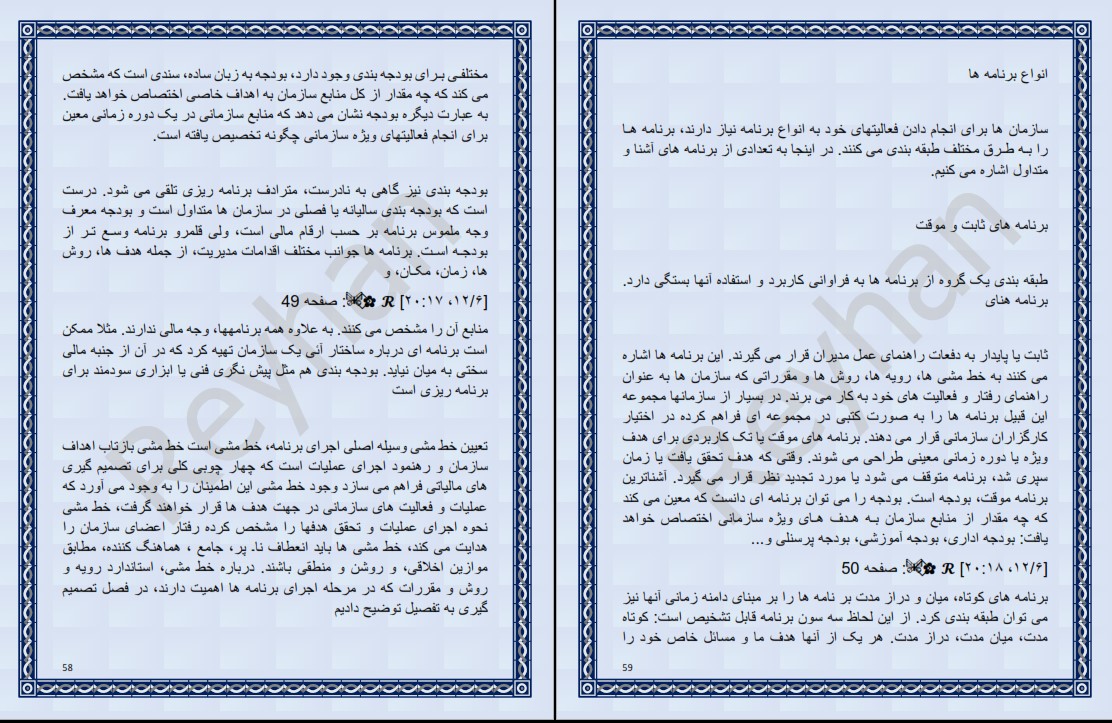 مختلفی برای بودجه بندی وجود دارد، بودجه به زبان ساده، سندی است که مشخص
می کند که چه مقدار از کل منابع سازمان به اهداف خاصی اختصاص خواهد یافت.
به عبارت دیگره بودجه نشان می دهد که منابع سازمانی در یک دوره زمانی معین
برای انجام فعالیتهای ویژه سازمانی چگونه تخصیص یافته است.
بودجه بندی نیز گاهی به نادرست، مترادف برنامه ریزی تلقی می شود. درست
است که بودجه بندی سالیانه یا فصلی در سازمان ها متداول است و بودجه معرف
وجه ملموس برنامه بر حسب ارقام مالی است، ولی قلمرو برنامه وسع تر از
بودجه است. برنامه ها جوانب مختلف اقدامات مدیریت، از جمله هدف ها، روش
ها، زمان، مکان، و
[۱۲/۶، ۲۰:۱۷] ℛ ✿🦋: صفحه 49
منابع آن را مشخص می کنند. به علاوه همه برنامهها، وجه مالی ندارند. مثلا ممکن
است برنامه ای درباره ساختار آتی یک سازمان تهیه کرد که در آن از جنبه مالی
سختی به میان نیاید. بودجه بندی هم مثل پیش نگری فنی یا ابزاری سودمند برای
برنامه ریزی است
تعیین خط مشی وسیله اصلی اجرای برنامه، خط مشی است خط مشی بازتاب اهداف
سازمان و رهنمود اجرای عملیات است که چهار چوبی کلی برای تصمیم گیری
های مالیاتی فراهم می سازد وجود خط مشی این اطمینان را به وجود می آورد که
عملیات و فعالیت های سازمانی در جهت هدف ها قرار خواهند گرفت، خط مشی
نحوه اجرای عملیات و تحقق هدفها را مشخص کرده رفتار اعضای سازمان را
هدایت می کند، خط مشی ها باید انعطاف ناـ پر، جامع ، هماهنگ کننده، مطابق
موازین اخلاقی، و روشن و منطقی باشند. درباره خط مشی، استاندارد رویه و
روش و مقررات که در مرحله اجرای برنامه ها اهمیت دارند، در فصل تصمیم
گیری به تفصیل توضیح دادیم
58
انواع برنامه ها
سازمان ها برای انجام دادن فعالیتهای خود به انواع برنامه نیاز دارند، برنامه ها
را به طرق مختلف طبقه بندی می کنند. در اینجا به تعدادی از برنامه های آشنا و
متداول اشاره می کنیم.
برنامه های ثابت و موقت
طبقه بندی یک گروه از برنامه ها به فراوانی کاربرد و استفاده آنها بستگی دارد.
برنامه هنای
ثابت یا پایدار به دفعات راهنمای عمل مدیران قرار می گیرند. این برنامه ها اشاره
می کنند به خط مشی ها، رویه ها، روش ها و مقرراتی که سازمان ها به عنوان
راهنمای رفتار و فعالیت های خود به کار می برند. در بسیار از سازمانها مجموعه
این قبیل برنامه ها را به صورت کتبی در مجموعه ای فراهم کرده در اختیار
کارگزاران سازمانی قرار می دهند. برنامه های موقت یا تک کاربردی برای هدف
ویژه یا دوره زمانی معینی طراحی می شوند. وقتی که هدف تحقق یافت یا زمان
سپری شد، برنامه متوقف می شود یا مورد تجدید نظر قرار می گیرد. آشناترین
برنامه موقت، بودجه است. بودجه را می توان برنامه ای دانست که معین می کند
که چه مقدار از منابع سازمان به هدف های ویژه سازمانی اختصاص خواهد
یافت: بودجه اداری، بودجه آموزشی، بودجه پرسنلی و...
[۱۲/۶، ۲۰:۱۸] ℛ ✿🦋: صفحه 50
برنامه های کوتاه، میان و دراز مدت بر نامه ها را بر مبنای دامنه زمانی آنها نیز
می توان طبقه بندی کرد. از این لحاظ سه سون برنامه قابل تشخیص است: کوتاه
مدت، میان مدت، دراز مدت. هر یک از آنها هدف ما و مسائل خاص خود را
59
Reyhan
Reyhan